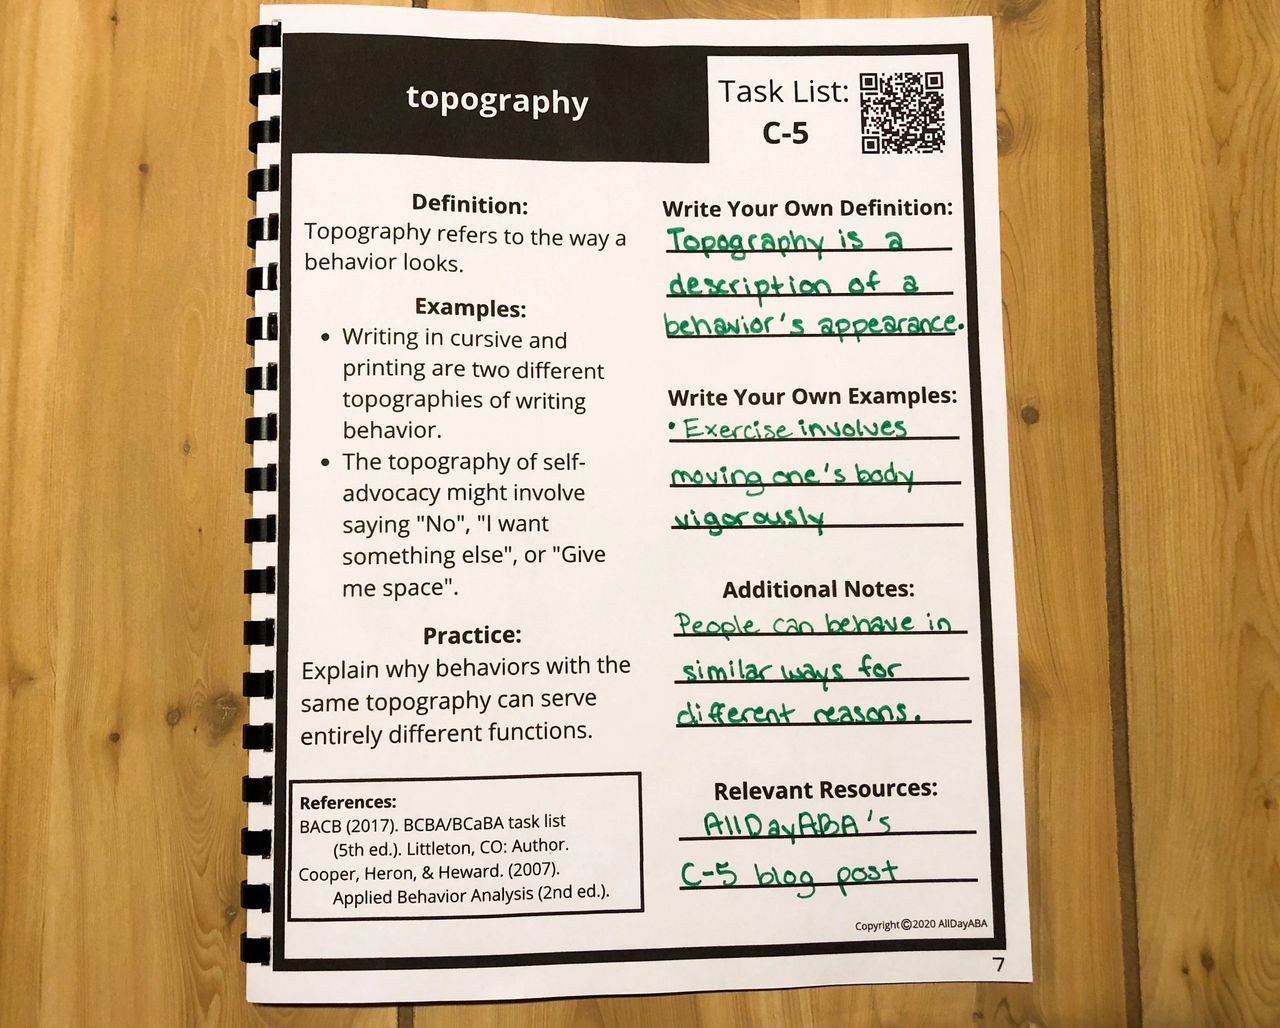 topography
Task List:
C-5
Definition:
Topography refers to the way a
behavior looks.
Examples:
• Writing in cursive and
printing are two different
topographies of writing
behavior.
• The topography of self-
advocacy might involve
saying "No", "I want
something else", or "Give
me space".
Practice:
Explain why behaviors with the
same topography can serve
entirely different functions.
References:
BACB (2017). BCBA/BCaBA task list
(5th ed.). Littleton, CO: Author.
Cooper, Heron, & Heward. (2007).
Applied Behavior Analysis (2nd ed.).
Write Your Own Definition:
Topography is a
description of a
behavior's appearance.
Write Your Own Examples:
• Exercise involves
moving one's body
vigorously
Additional Notes:
People can behave in
similar ways for
different reasons.
Relevant Resources:
AllDayABA's
C-5 blog post
Copyright©2020 AllDayABA
7